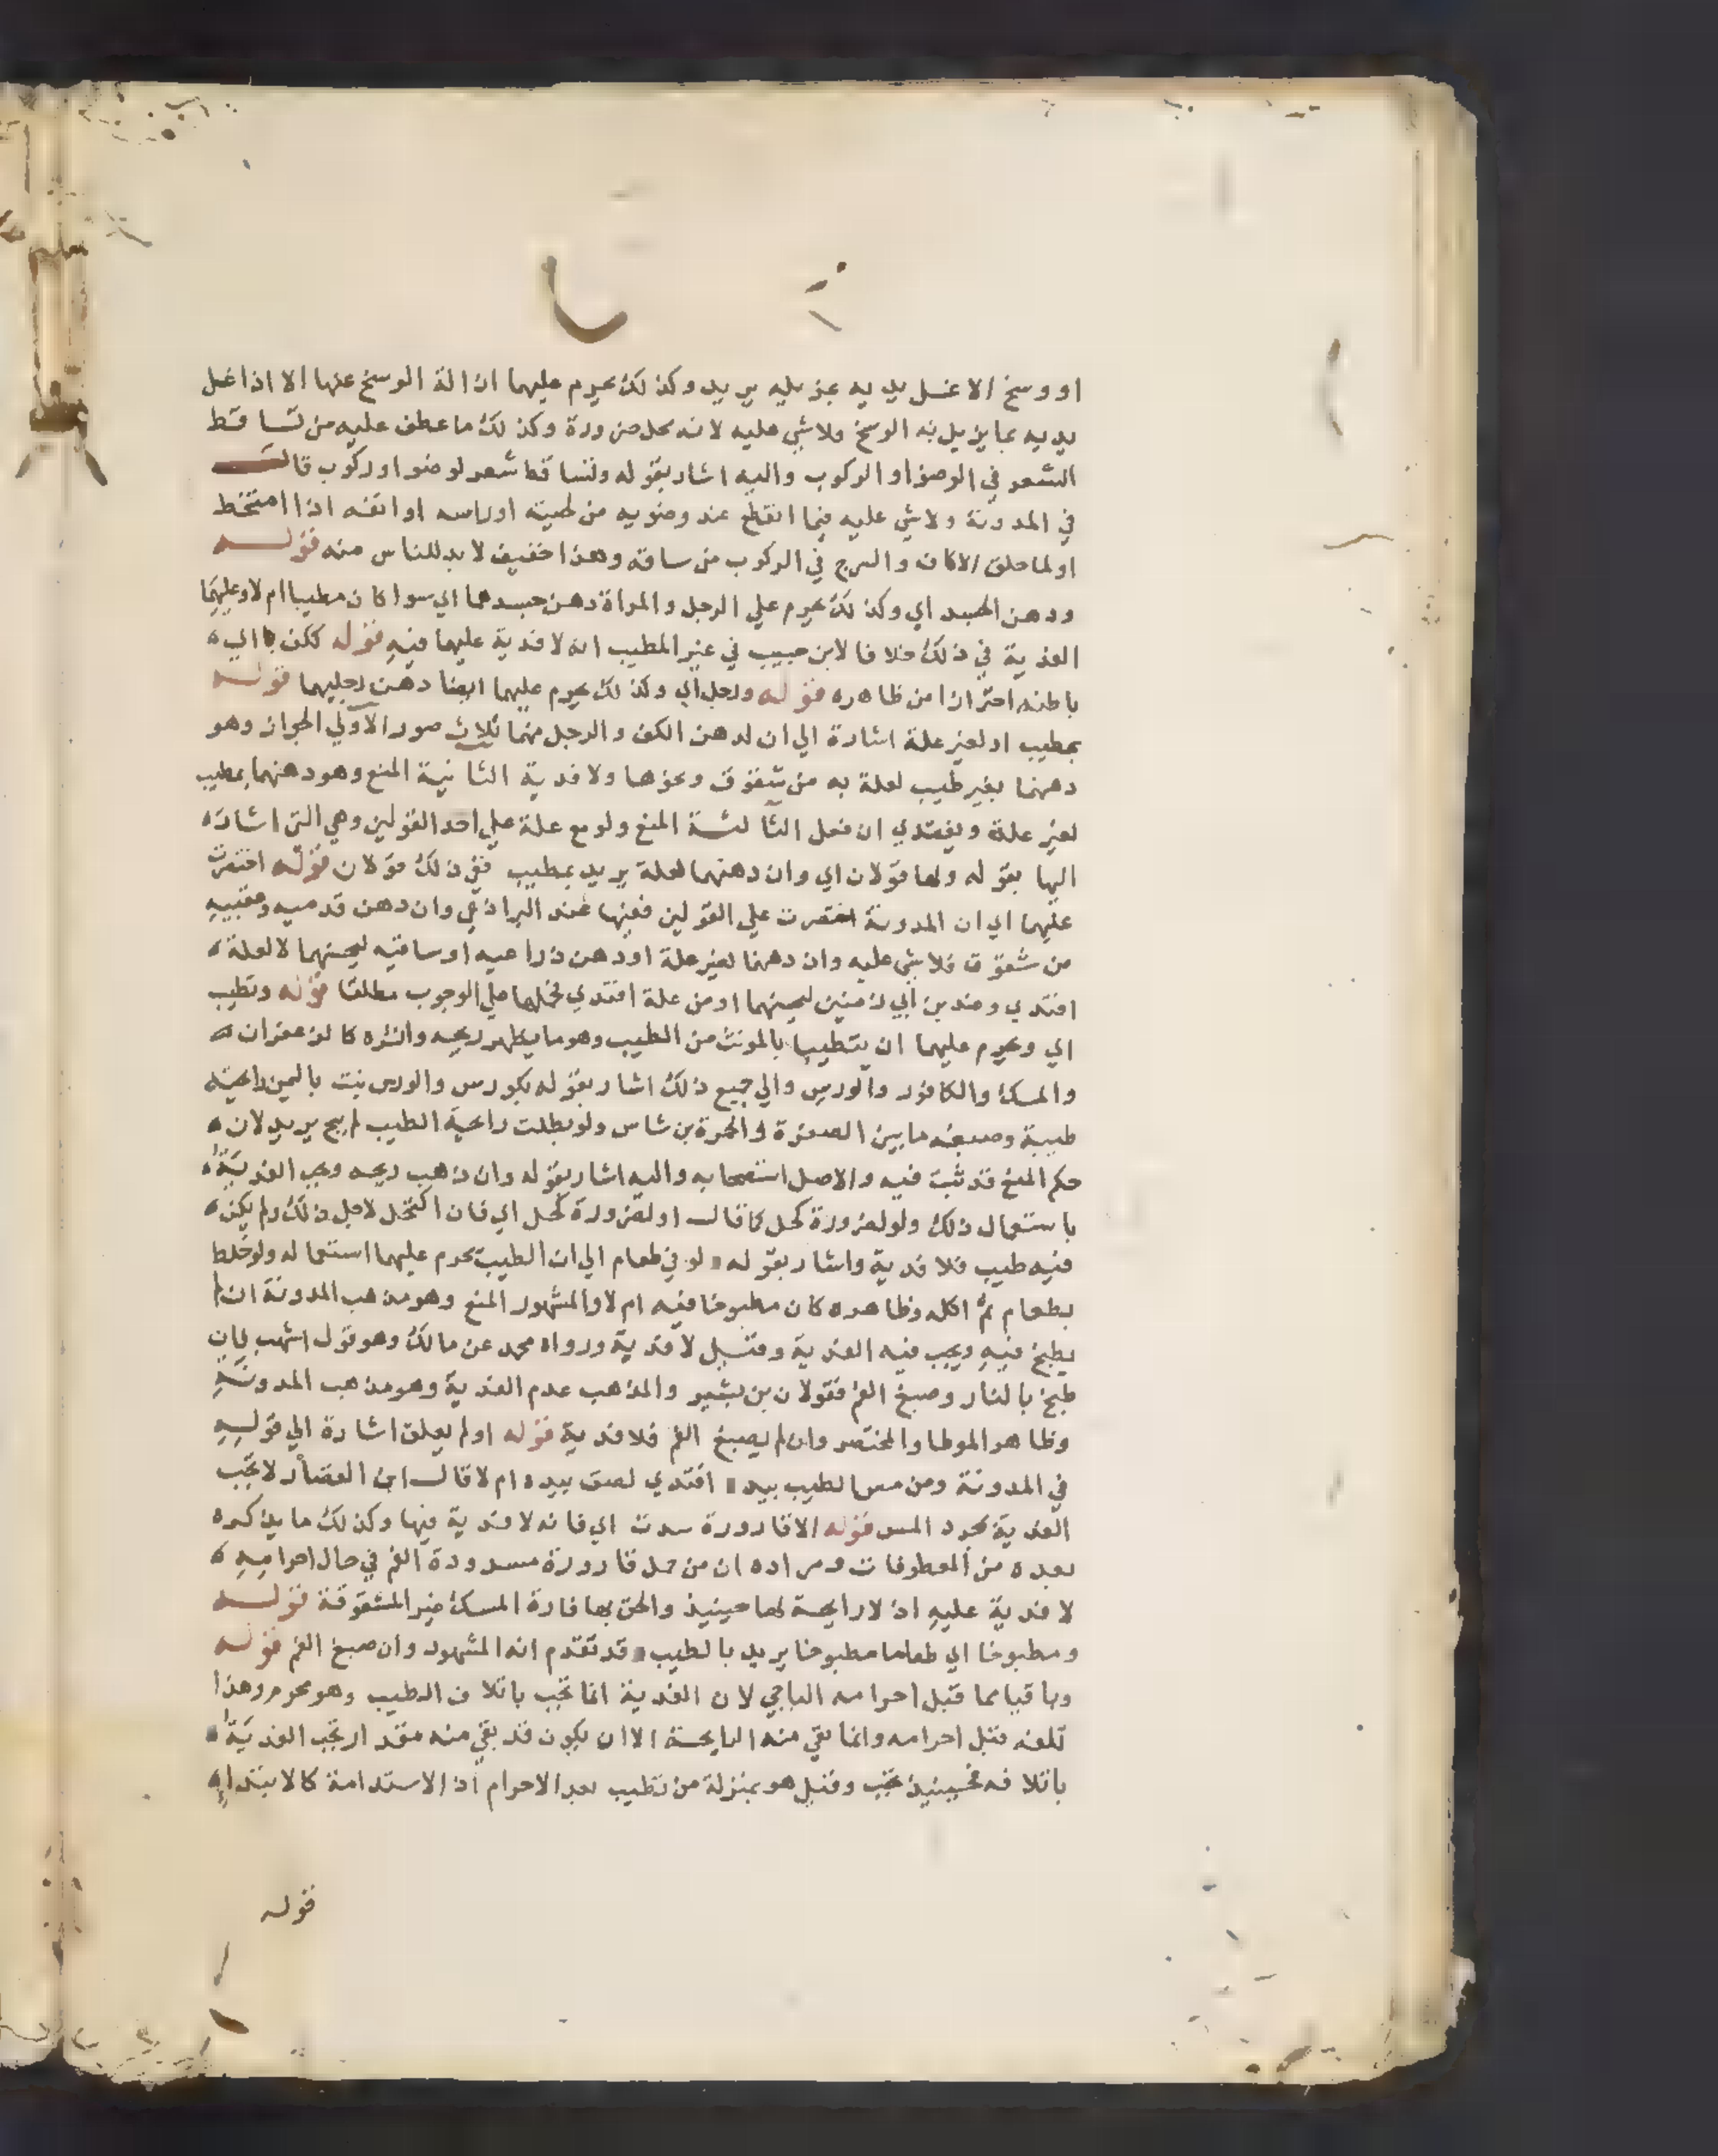 او وسخ الا غسل يديه بمزيليه يريد وكذلك يحرم عليهما ازالة الوسخ عنها الا اذا غسل
يديه بما يزيل به الوسخ ولا شي عليه لانه محل ضرورة وكذلك ما عطف عليه من تساقط
الشعر في الوضوء او الركوب واليه اشار بقوله وتساقط شعر لوضوء او ركوب قال
في المدونة ولا شي عليه فيما انقطع عند وضويه من لحيته او راسه او انفه اذا امتخط
او لما حلق الاكاف والسرج في الركوب من ساقه وهذا خفيف لا بد للناس منه قوله
ودهن الجسد اي وكذلك يحرم علي الرجل والمراة دهن جسدهما اي سوا كان مطيبا ام لا وعليهما
الفدية في ذلك خلافا لابن حبيب في غير المطيب انه لا فدية عليهما فيه قوله ككف اي
باطنه احترازا من ظاهره قوله ورجل اي وكذلك يحرم عليهما ايضا دهن رجليهما قوله
بمطيب او لغير علة اشارة الي ان لدهن الكف والرجل منهما ثلاث صور الاولي الجواز وهو
دهنهما بغير طيب لعلة به من شقوق ونحوها ولا فدية الثانية المنع وهو دهنهما بمطيب
لغير علة ويفتدي ان فعل الثالثة المنع ولو مع علة علي احد القولين وهي التي اشار
اليها بقوله ولها قولان اي وان دهنهما لعلة يريد بمطيب ففي ذلك قولان قوله اختصرت
عليهما اي ان المدونة اختصرت علي القولين ففيها عند البراذعي وان دهن قدميه وعقبيه
من شقوق فلا شي عليه وان دهنهما لغير علة او دهن ذراعيه او ساقيه ليحسنهما لا لعلة
افتدي وعند بن ابي زمنين ليحسنهما او من علة افتدي فحملها علي الوجوب مطلقا قوله وتطيب
اي ويحرم عليهما ان يتطيبا بالمونث من الطيب وهو ما يظهر ريحه واثره كالزعفران
والمسك والكافور والورس والي جميع ذلك اشار بقوله بكورس والورس نبت باليمن رائحته
طيبة وصبغه ما بين الصفرة والحمرة بن شاس ولو بطلت رائحة الطيب لم يبح يريد لان
حكم المنع قد ثبت فيه والاصل استصحابه واليه اشار بقوله وان ذهب ريحه وتجب الفدية
باستعمال ذلك ولو لضرورة كحل كما قال او لضرورة كحل اي فان اكتحل لاجل ذلك ولم يكن
فيه طيب فلا فدية واشار بقوله لو في طعام الي ان الطيب يحرم عليهما استعماله ولو خلط
بطعام ثم اكله وظاهره كان مطبوخا فيه ام لا والمشهور المنع وهو مذهب المدونة ان لم
يطبخ فيه ويجب فيه الفدية وقيل لا فدية ورواه محمد عن مالك وهو قول اشهب فان
طبخ بالنار وصبغ الفم فقولان بن بشير والمذهب عدم الفدية وهو مذهب المدونة
وظاهر الموطا والمختصر وان لم يصبغ الفم فلا فدية قوله او لم يعلق اشارة الي قوله
في المدونة ومن مس الطيب بيده افتدي لصق بيده ام لا قال ابن القصار لا تجب
الفدية بمجرد المس قوله الا قارورة سدت اي فانه لا فدية فيها وكذلك ما يذكره
بعده من المعطوفات ومراده ان من حمل قارورة مسدودة الفم في حال احرامه
لا فدية عليه اذ لا رايحة لها حينيذ والحق بها فارة المسك غير المشقوقة قوله
ومطبوخا اي طعاما مطبوخا يريد بالطيب قد تقدم انه المشهور وان صبغ الفم قوله
وباقيا مما قبل احرامه الباجي لان الفدية انما تجب باتلاف الطيب وهو محرم وهذا
تلفه قبل احرامه وانما بقي منه الرايحة الا ان يكون قد بقي منه مقدار تجب الفدية
باتلافه فحينيذ تجب وقيل هو بمنزلة من تطيب بعد الاحرام اذ الاستدامة كالابتداء
قوله